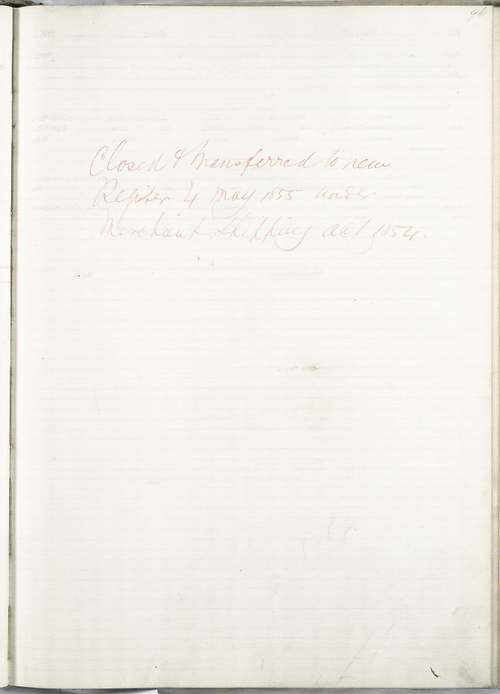 96
Closed & transferred to new
Register 4 May 1855 under
Merchant Shipping Act 1854.